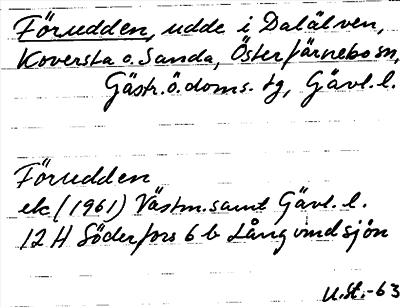 Förudden, udde i Dalälven,
Koversta o. Sanda, Österfärnebo sn,
Gästr. ö. doms. tg, Gävl. l.
Förudden
ek (1961) Västm. samt Gävl. l.
12 H Söderfors 6 b Långvindsjön
U.St.-63